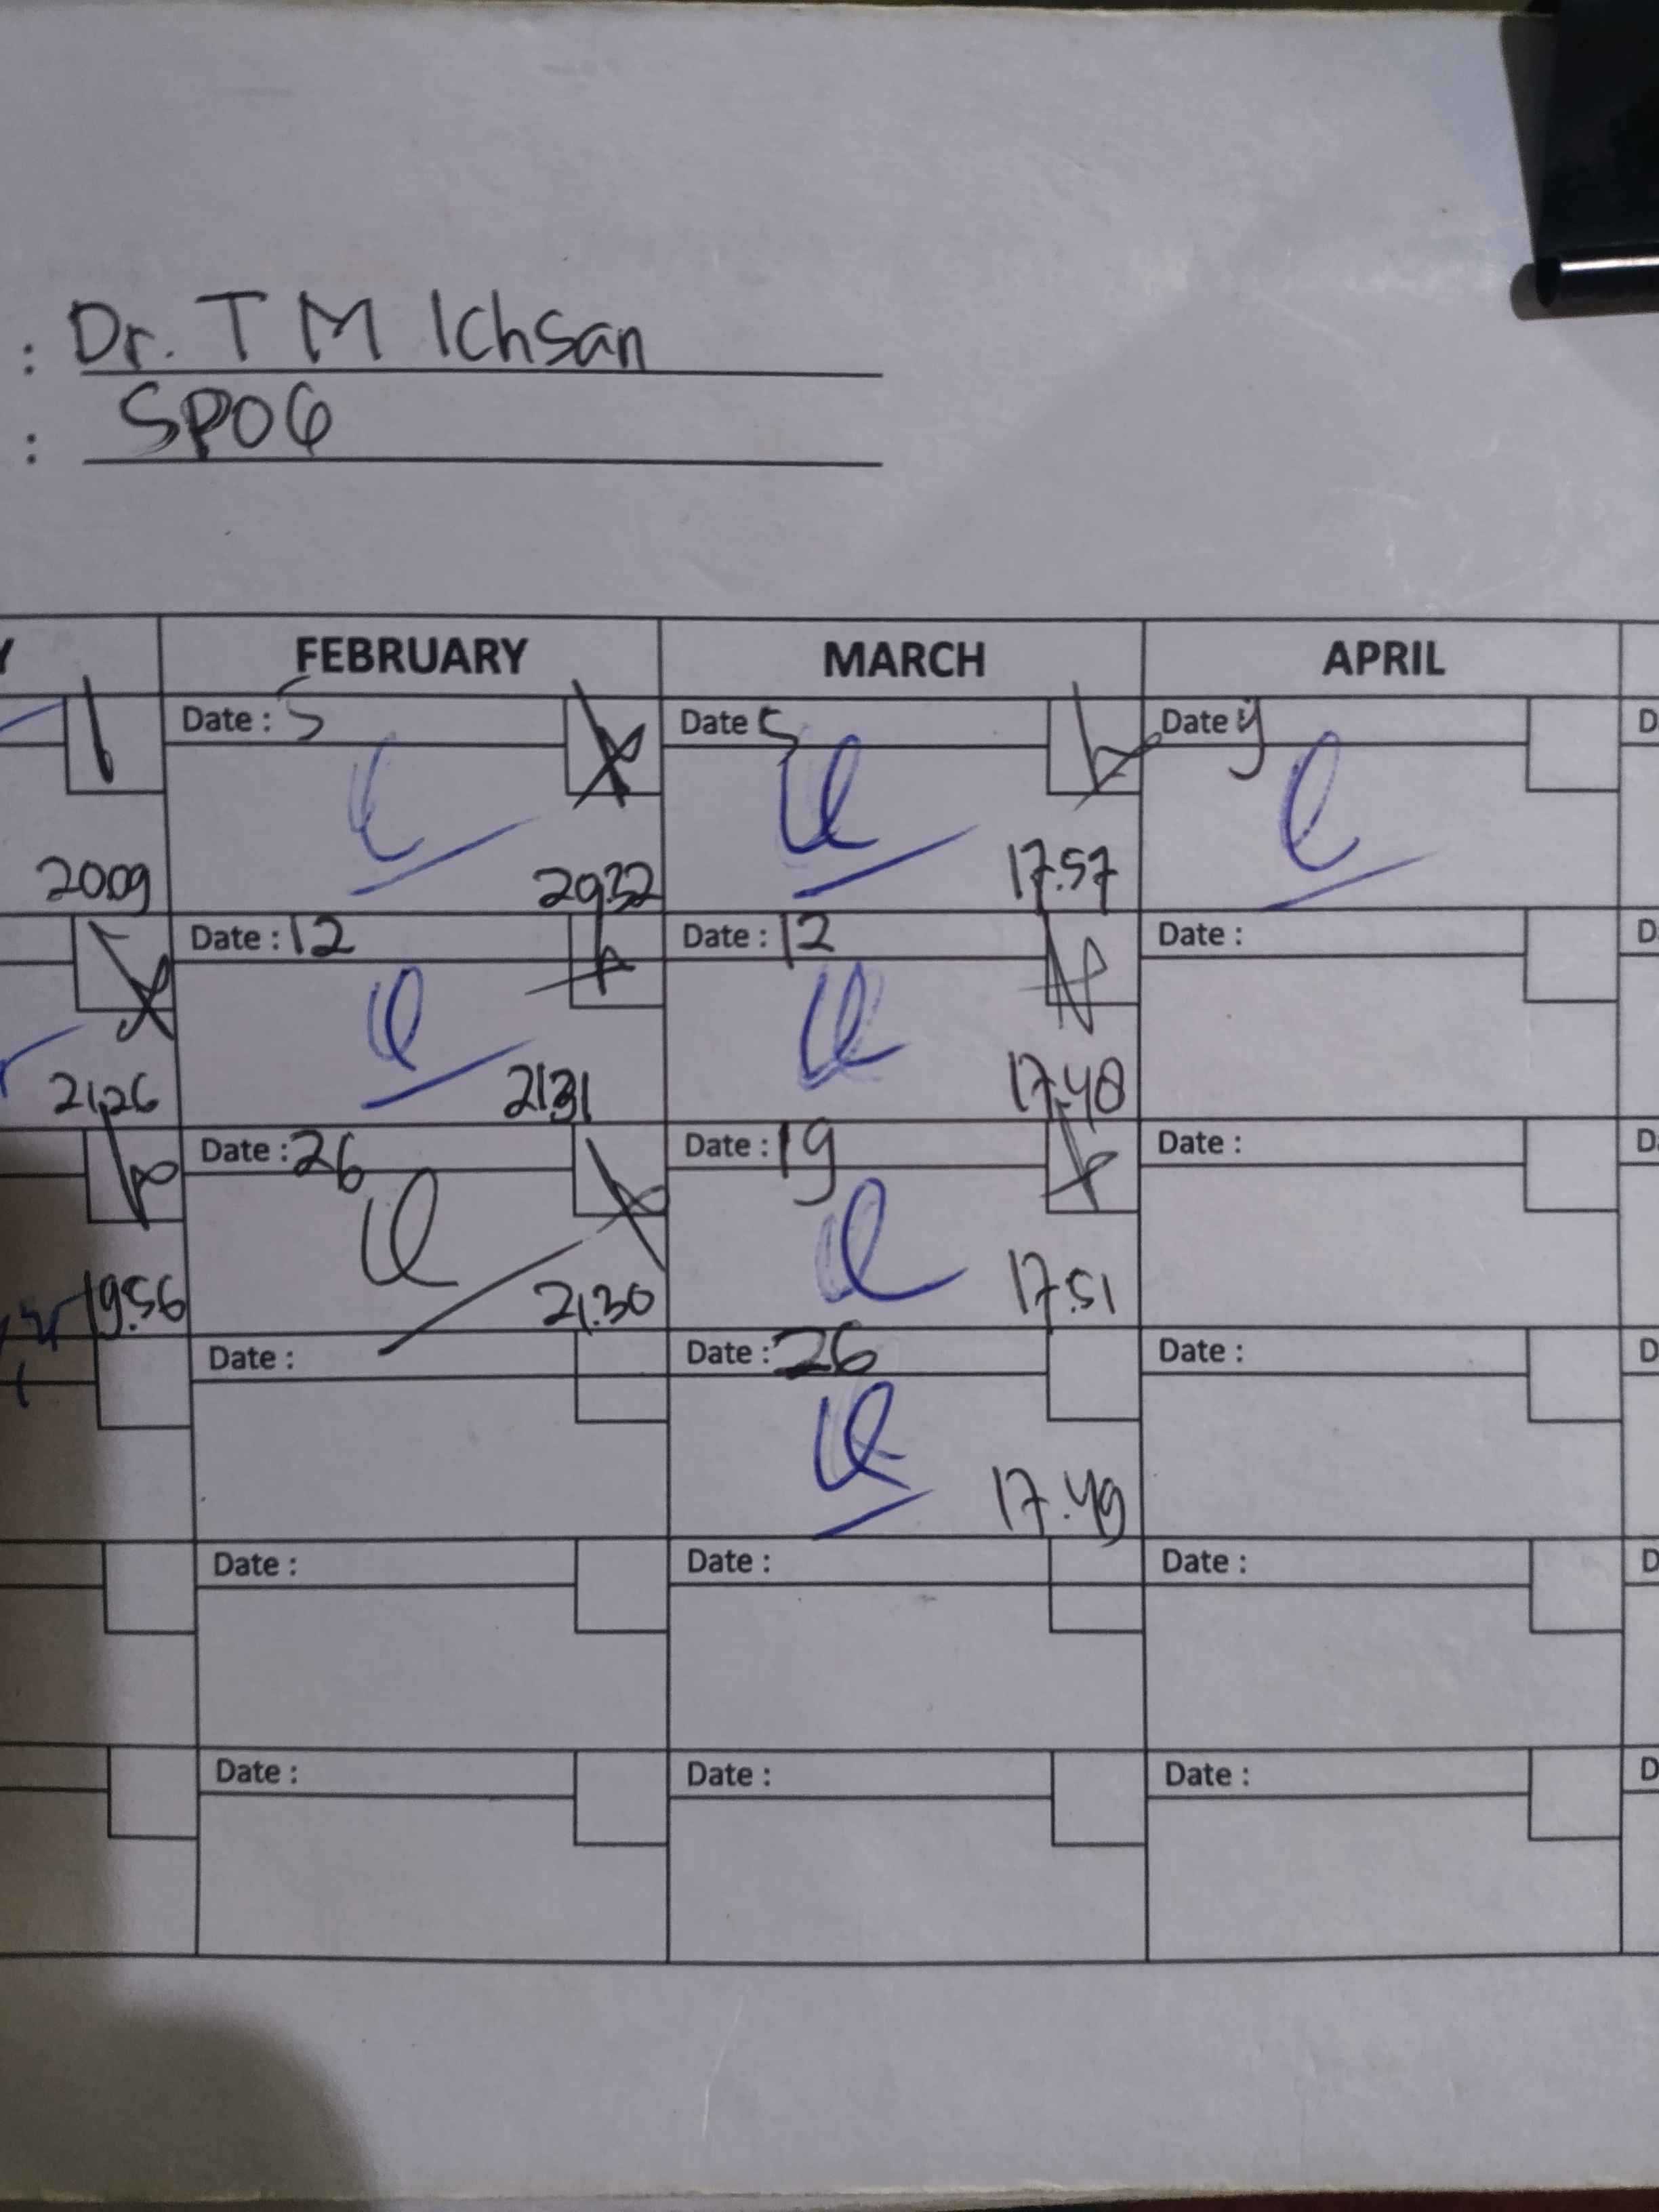 : Dr. T M Ichsan
: SPOG
Y FEBRUARY MARCH APRIL
Date : 5 Date 5 Date
2009 2032 17.57
Date : 12 Date : 12 Date :
21.26 2131 17.48
Date : 26 Date : 19 Date :
19.56 21.30 17.51
Date : Date : 26 Date :
17.49
Date : Date : Date :
Date : Date : Date :